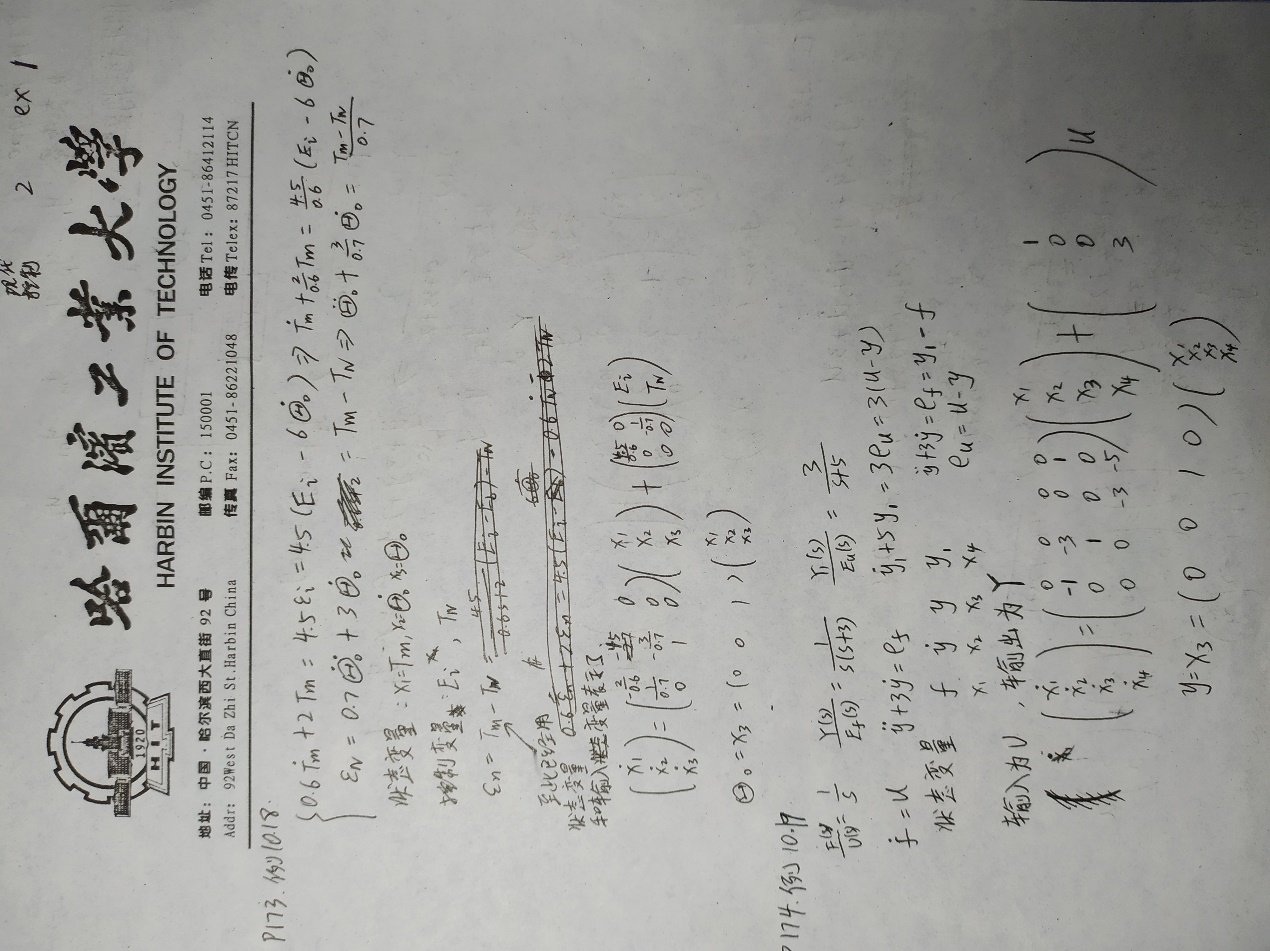 现代控制 2 ex 1
哈爾濱工業大學
HARBIN INSTITUTE OF TECHNOLOGY
1920
HIT
地址: 中国·哈尔滨西大直街 92 号 邮编 P.C: 150001 电话 Tel: 0451-86412114
Addr: 92West Da Zhi St.Harbin China 传真 Fax: 0451-86221048 电传 Telex: 87217HITCN
P173. 例10.18.
{0.6Ṫm + 2Tm = 4.5εi = 4.5(Ei - 6Θ̇o) ⇒ Ṫm + 2/0.6 Tm = 4.5/0.6 (Ei - 6Θ̇o)
εN = 0.7Θ̈o + 3Θ̇o = Tm - TN ⇒ Θ̈o + 3/0.7 Θ̇o = (Tm - TN)/0.7
状态变量: x1=Tm, x2=Θ̇o x3=Θo
控制变量: Ei, TN
εn = Tm - TN =
到此已经用
状态变量
和输入 变量表定了.
(ẋ1 ẋ2 ẋ3) = (-2/0.6 0 ; 1/0.7 -3/0.7 0 ; 0 1 0)(x1 x2 x3) + (4.5/0.6 0 ; 0 -1/0.7 ; 0 0)(Ei TN)
Θo = x3 = (0 0 1)(x1 x2 x3)
P174. 例10.19
F(s)/U(s) = 1/s Y(s)/Ef(s) = 1/s(s+3) Y1(s)/Eu(s) = 3/s+5
ḟ = u ÿ+3ẏ = ef ẏ1+5y1 = 3eu = 3(u-y)
状态变量 f ẏ y y1 ÿ+3ẏ = ef = y1 - f
x1 x2 x3 x4 eu = u - y
输入为U, 输出为Y
(ẋ1 ẋ2 ẋ3 ẋ4) = (0 0 0 0 ; -1 -3 0 1 ; 0 1 0 0 ; 0 0 -3 -5)(x1 x2 x3 x4) + (1 0 0 3)u
y = x3 = (0 0 1 0)(x1 x2 x3 x4)